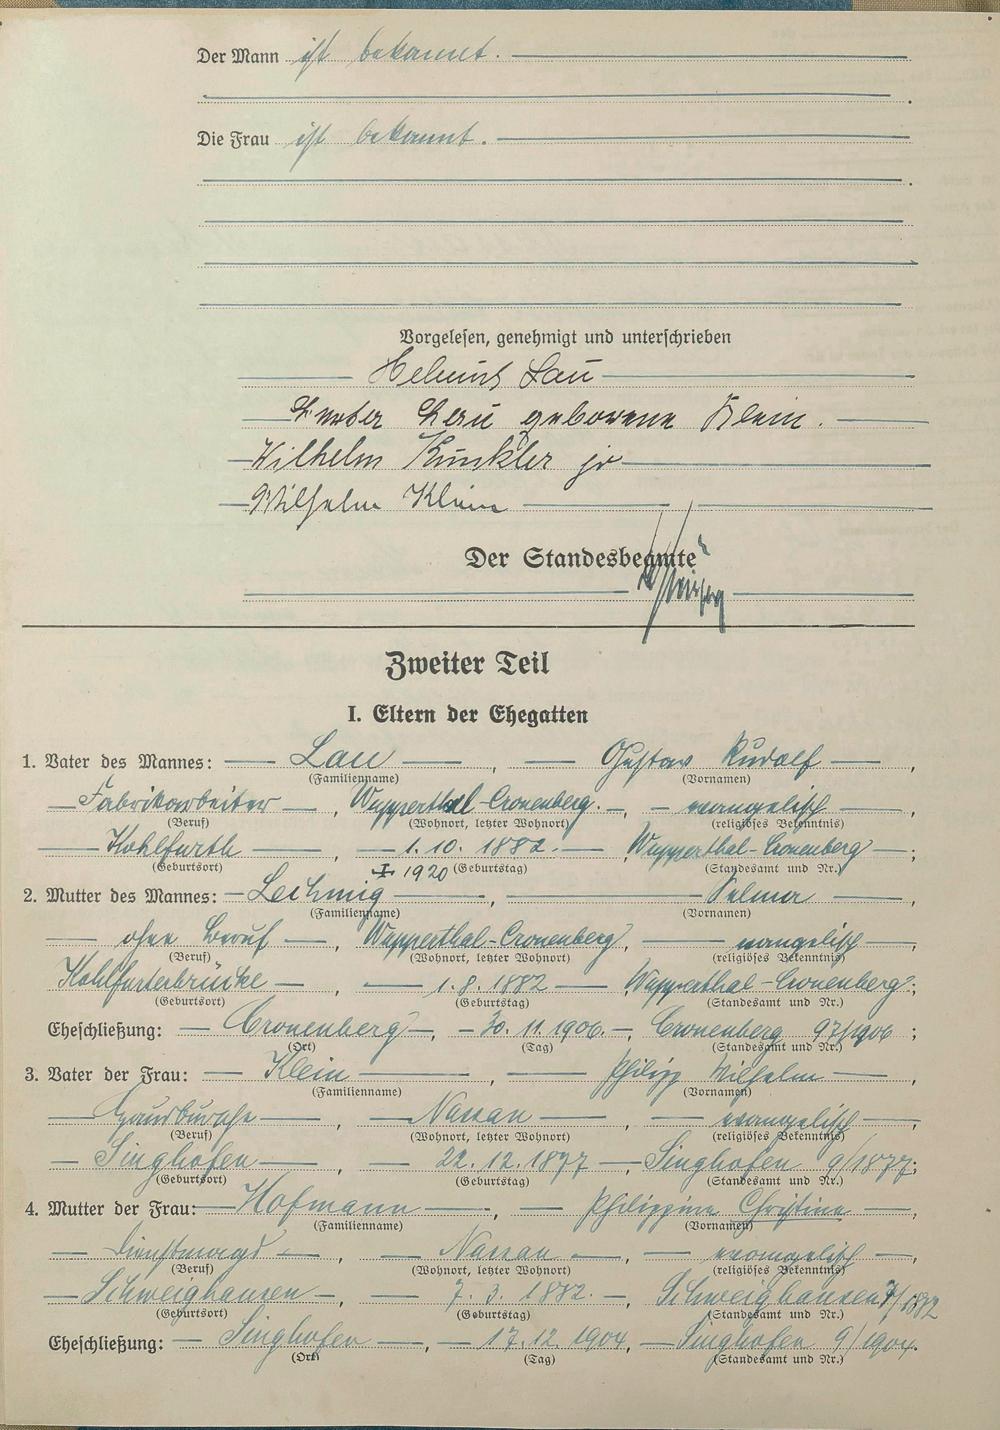 Der Mann ist bekannt.
Die Frau ist bekannt.
Vorgelesen, genehmigt und unterschrieben
Helmut Lau
Lau geborene Klein.
Wilhelm Kunkler jr
Wilhelm Klein
Der Standesbeamte
Zweiter Teil
I. Eltern der Ehegatten
1. Vater des Mannes: Lau, Gustav Rudolf,
(Familienname) (Vornamen)
Fabrikarbeiter, Wupperthal-Cronenberg., evangelisch,
(Beruf) (Wohnort, letzter Wohnort) (religiöses Bekenntnis)
Kohlfurth, 1.10.1882. Wupperthal-Cronenberg;
(Geburtsort) (Geburtstag) (Standesamt und Nr.)
1920
2. Mutter des Mannes: , Selma,
(Familienname) (Vornamen)
ohne Beruf, Wupperthal-Cronenberg, evangelisch,
(Beruf) (Wohnort, letzter Wohnort) (religiöses Bekenntnis)
Kohlfurterbrücke, 1.8.1882 Wupperthal-Cronenberg;
(Geburtsort) (Geburtstag) (Standesamt und Nr.)
Eheschließung: Cronenberg, 30.11.1906., Cronenberg 97/1906;
(Ort) (Tag) (Standesamt und Nr.)
3. Vater der Frau: Klein, Philipp Wilhelm,
(Familienname) (Vornamen)
, Nassau, evangelisch,
(Beruf) (Wohnort, letzter Wohnort) (religiöses Bekenntnis)
Singhofen, 22.12.1877, Singhofen 9/1877;
(Geburtsort) (Geburtstag) (Standesamt und Nr.)
4. Mutter der Frau: Hofmann, Philippine Christine,
(Familienname) (Vornamen)
Dienstmagd, Nassau, evangelisch,
(Beruf) (Wohnort, letzter Wohnort) (religiöses Bekenntnis)
Schweighausen, 7.3.1882., Schweighausen 7/1882
(Geburtsort) (Geburtstag) (Standesamt und Nr.)
Eheschließung: Singhofen, 17.12.1904, Singhofen 9/1904.
(Ort) (Tag) (Standesamt und Nr.)